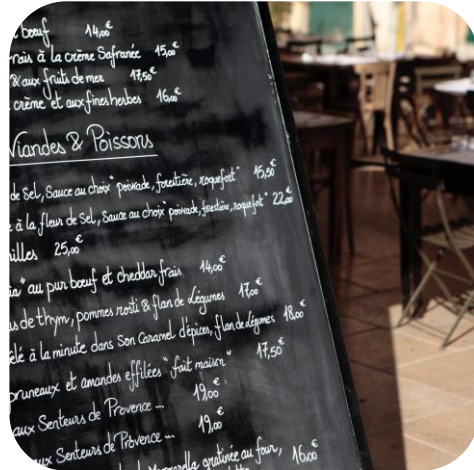 bœuf 14,00€
rais à la crème Safranée 15,00€
& aux fruits de mer 17,50€
crème et aux fines herbes 16,00€
Viandes & Poissons
de Sel, Sauce au choix "poivrade, forestière, roquefort" 15,50€
à la fleur de Sel, Sauce au choix "poivrade, forestière, roquefort" 22,00€
illes 25,00€
ia" au pur bœuf et cheddar frais 14,00€
us de thym, pommes rosti & flan de Légumes 17,00€
élé à la minute dans Son Caramel d'épices, flan de Légumes 18,00€
pruneaux et amandes effilées "fait maison" 17,50€
aux Senteurs de Provence ... 19,00€
aux Senteurs de Provence ... 19,00€
gratinée au four, 16,00€